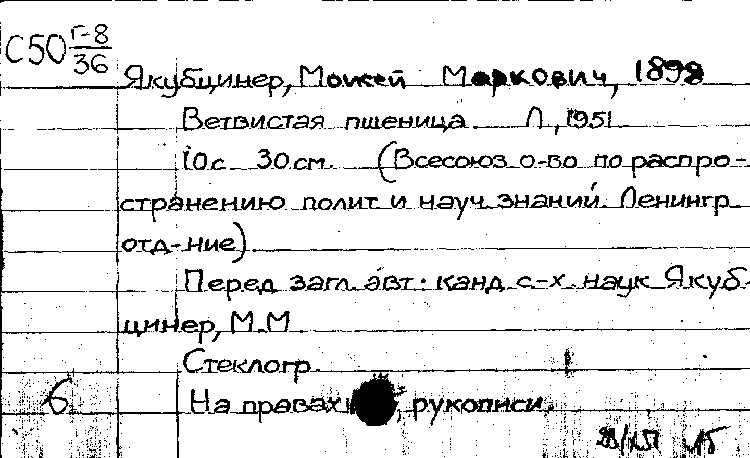 С50 Г-8
36
Якубцинер, Моисей Маркович, 1898
Ветвистая пшеница. Л., 1951
10 с. 30 см. (Всесоюз о-во по распро-
странению полит и науч. знаний. Ленингр
отд-ние).
Перед загл. авт.: канд с-х. наук Якуб-
цинер, М.М
Стеклогр.
На правах рукописи.
6